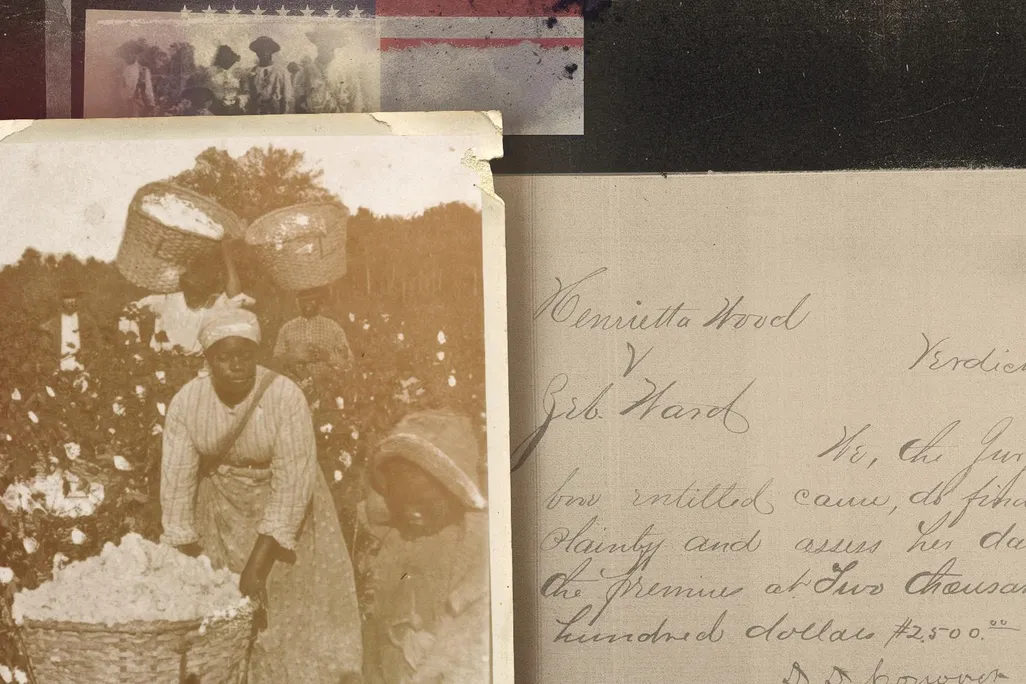 Henrietta Wood
v
Zeb. Ward
Verdic
We, the Jur
bove entitled cause, do find
Plaintiff and assess her da
the premises at Two thousan
hundred dollars $2,500.00